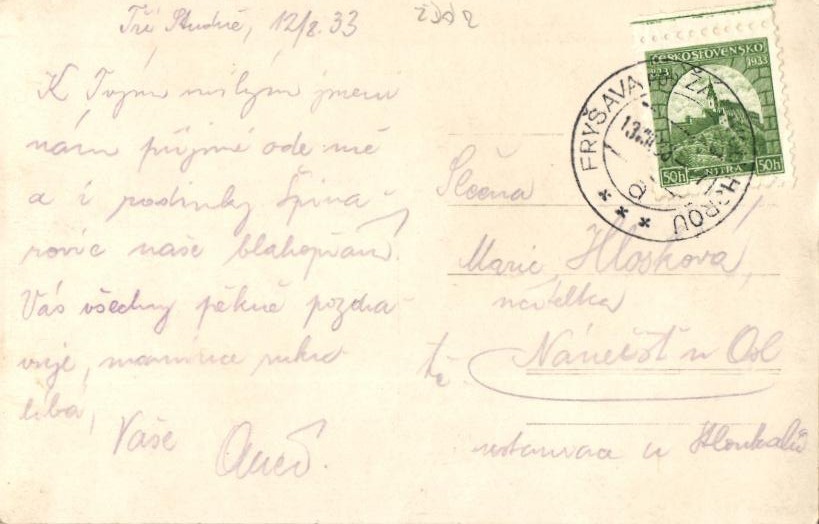 Tři Studně, 12/8. 33
K Tvým milým jmeni
nám přijmi ode mě
a i rodinky Špina
rovic naše blahopřání.
Vás všechny pěkně pozdra-
vuje, mamince ruku
líbá,
Vaše
ČESKOSLOVENSKO
1933
50h NITRA 50h
FRYŠAVA POD ŽÁK. HOROU
Slečna
Marie Hlosková,
učitelka
Náměšť n Osl
restaurace u